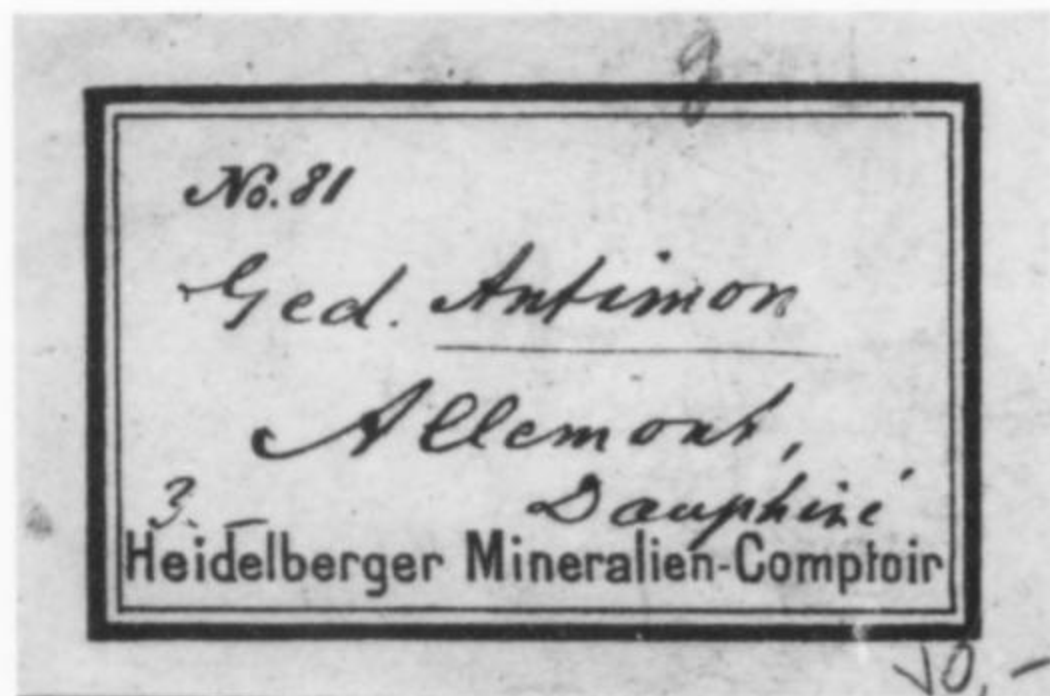 No. 81
Ged. Antimon
Allemont,
Dauphiné
3. —
Heidelberger Mineralien-Comptoir